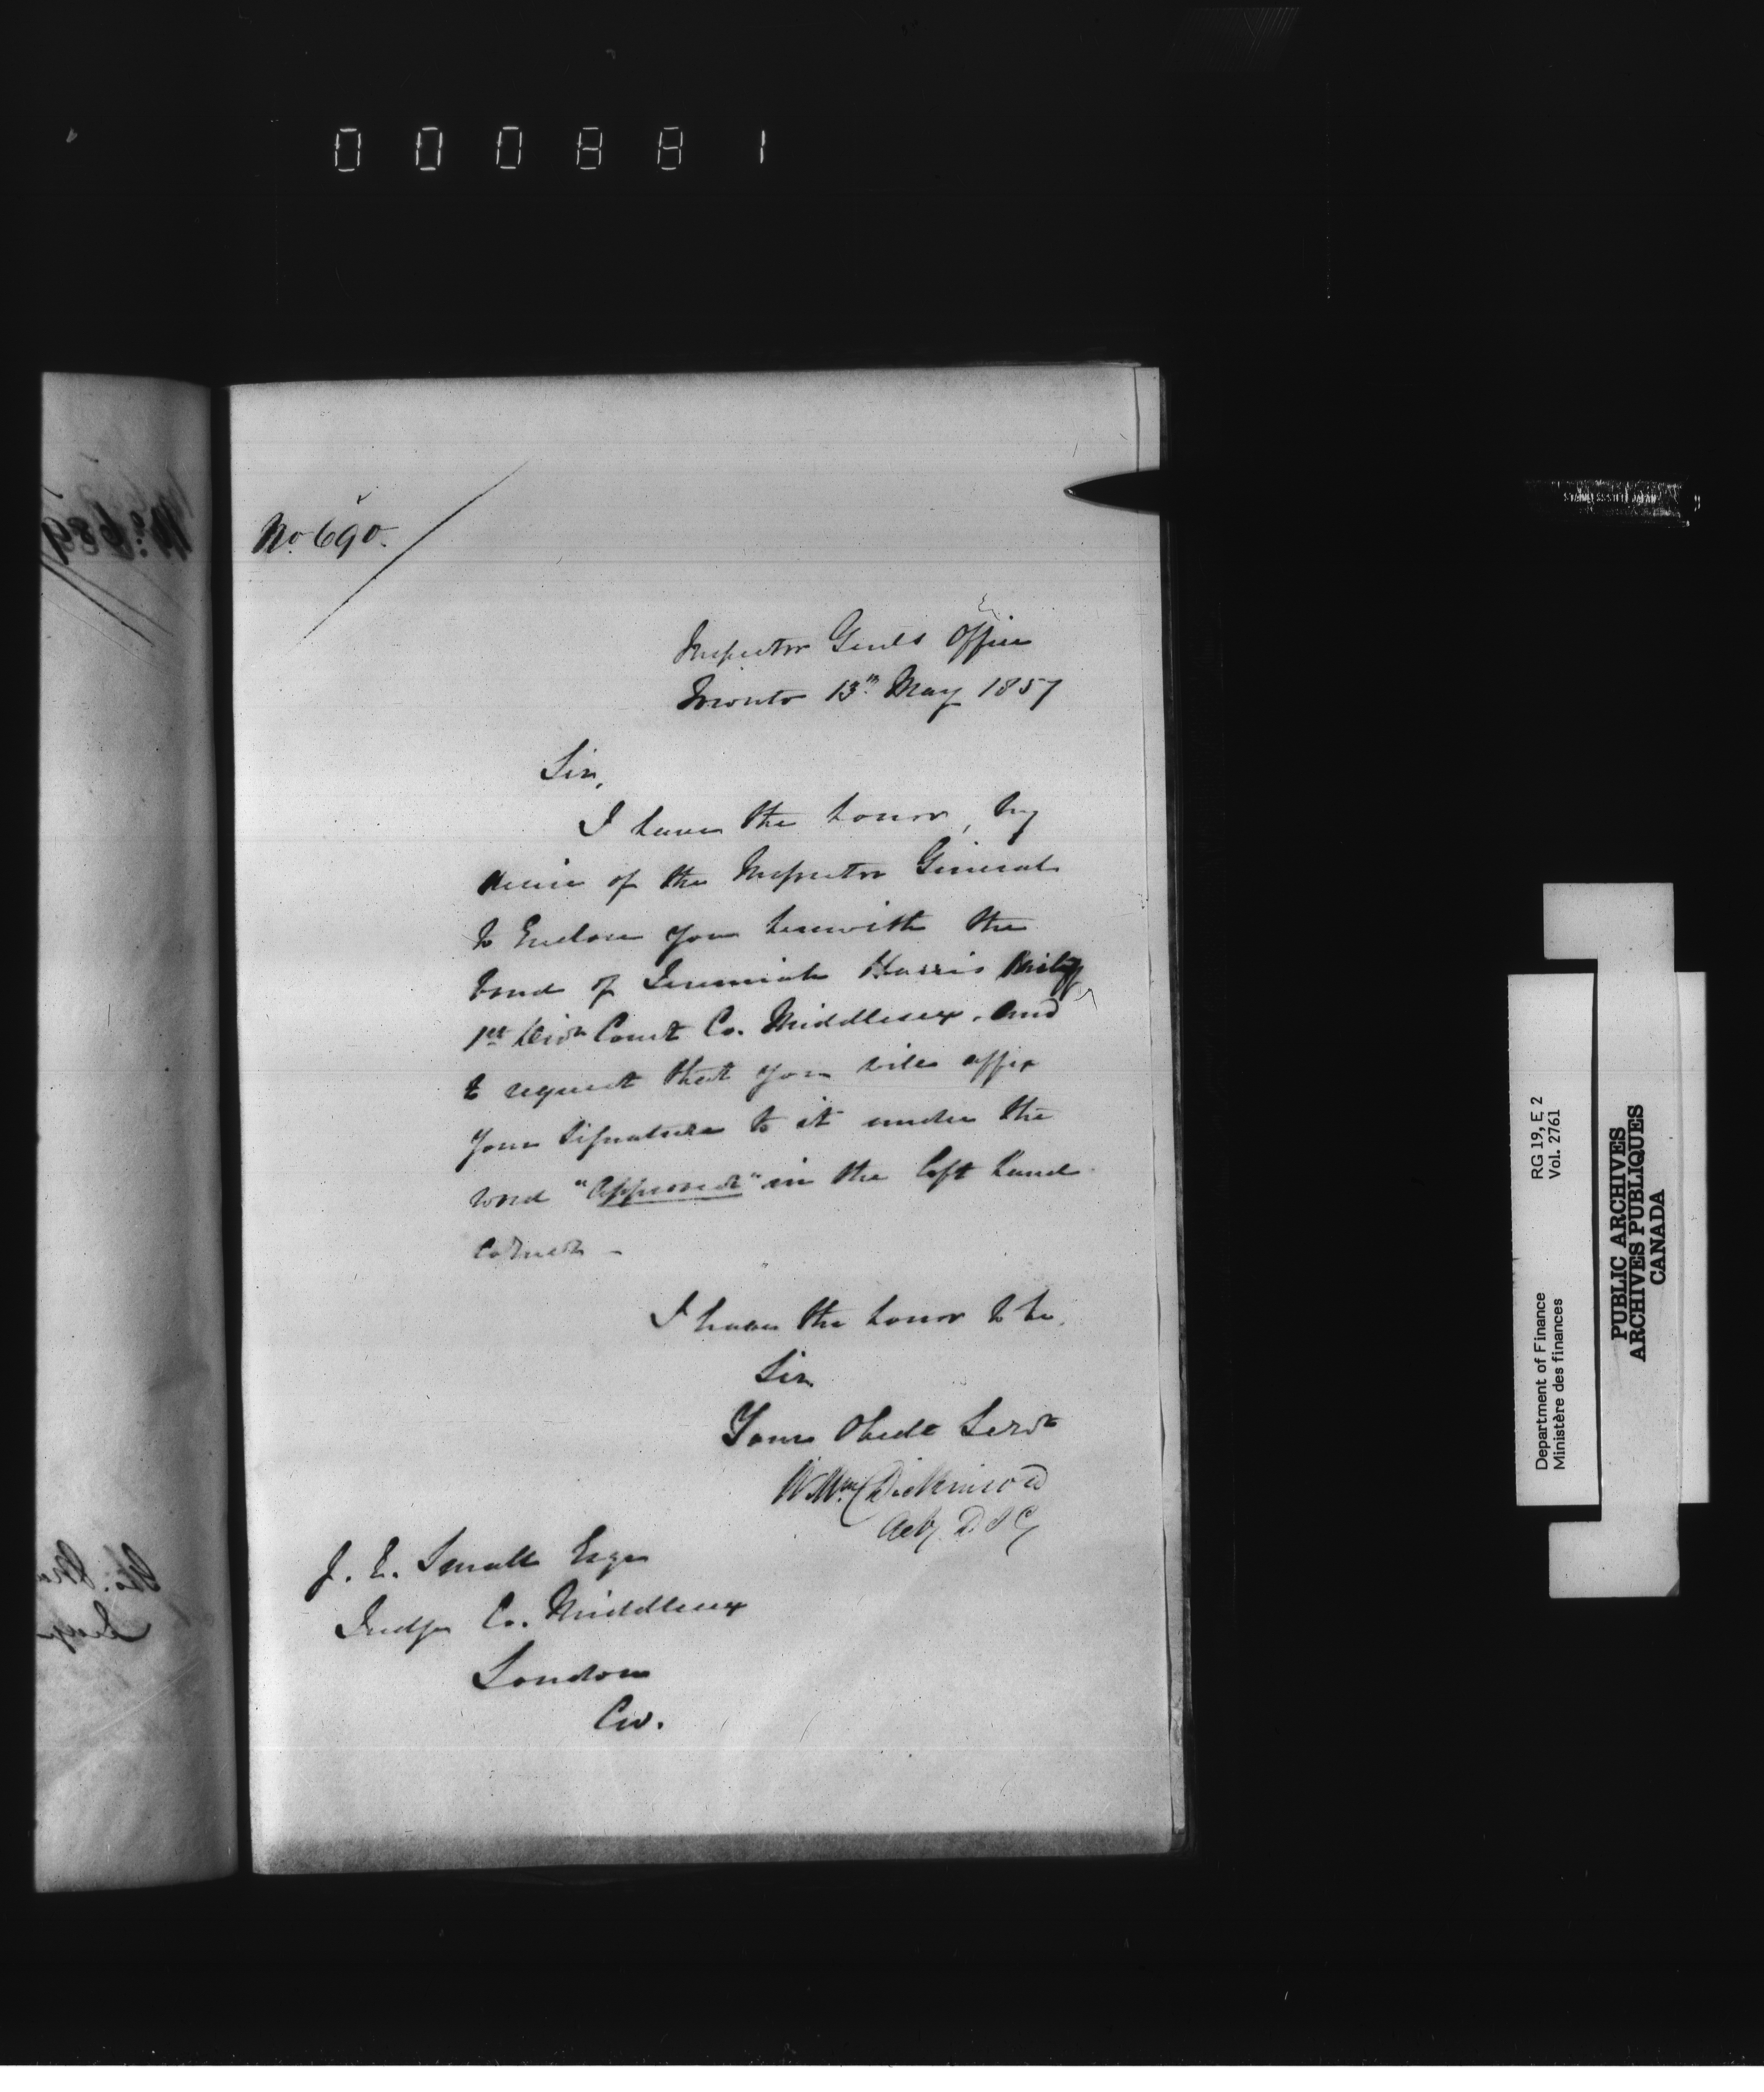 000881
No. 690.
Inspector Genls Office
Toronto 13th May 1857
Sir,
I have the honor, by
desire of the Inspector General
to Enclose you herewith the
bond of Jeremiah Harris Bailiff
1st Divn Court Co. Middlesex, and
to request that you will affix
your signature to it under the
word "Approved" in the left hand
corner -
I have the honor to be,
Sir
Your Obedt Servt
Wm Dickinson
Actg D I G
J. E. Small Esqr
Judge Co. Middlesex
London
CW.
No. 689
Judge
STAINLESS STEEL JAPAN
Department of Finance RG 19, E 2
Ministère des finances Vol. 2761
PUBLIC ARCHIVES
ARCHIVES PUBLIQUES
CANADA